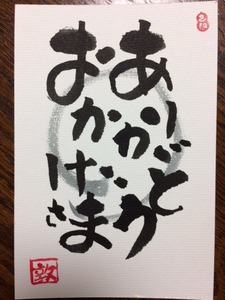 ありがとう
おかげさま
敦